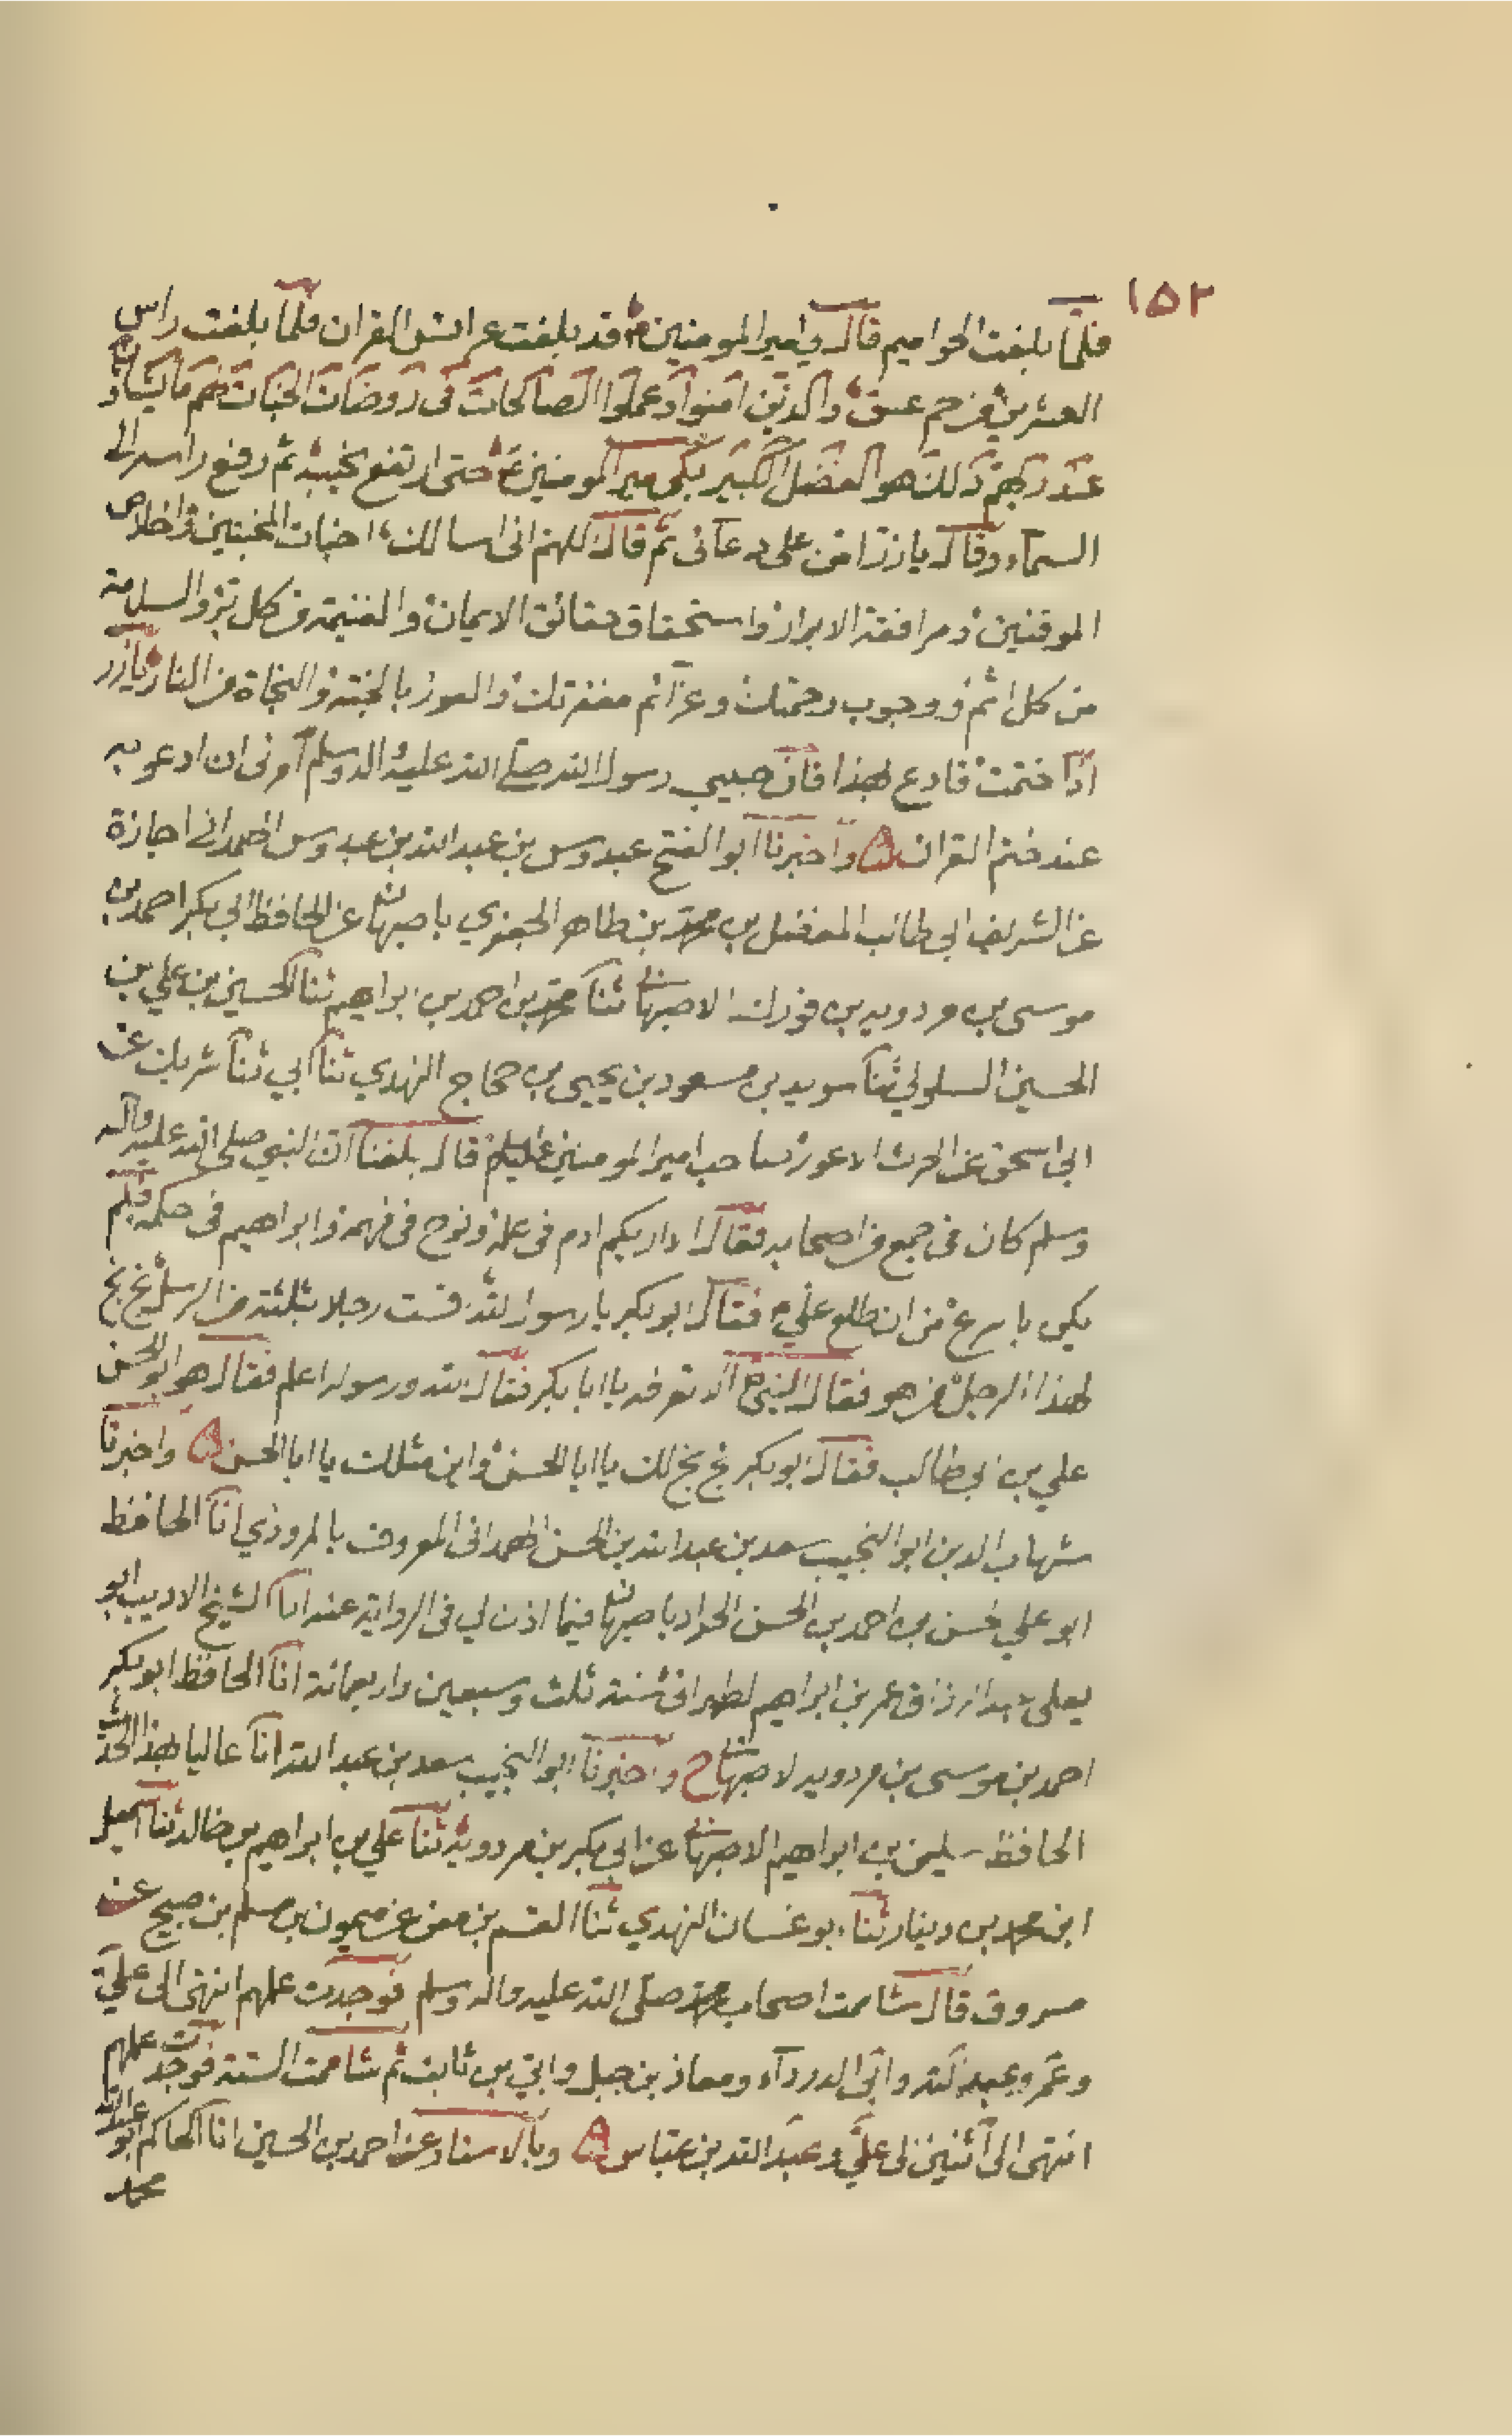 ١٥٢
فلما بلغت الحواميم قال لي امير المومنين ع قد بلغت عرائس القران فلما بلغت راس
العشرين من حم عسق والذين امنوا وعملوا الصالحات في روضات الجنات لهم ما يشاؤن
عند ربهم ذلك هو الفضل الكبير بكى امير المومنين ع حتى ارتفع نحيبه ثم رفع راسه الى
السماء وقال يا زر امن على دعائى ثم قال اللهم انى اسالك اخبات المخبتين واخلاص
الموقنين ومرافقة الابرار واستحقاق حقائق الايمان والغنيمة من كل بر والسلامة
من كل اثم ووجوب رحمتك وعزائم مغفرتك والفوز بالجنة والنجاة من النار يا زر
اذا ختمت فادع بهذا فان حبيبي رسول الله صلى الله عليه واله وسلم امرنى ان ادعو به
عند ختم القران ه واخبرنا ابو الفتح عبدوس بن عبد الله بن عبدوس الهمدانى اجازة
عن الشريف ابي طالب المفضل بن محمد بن طاهر الجعفري باصبهان عن الحافظ ابي بكر احمد بن
موسى بن مردويه بن فورك الاصبهاني ثنا محمد بن احمد بن ابراهيم ثنا الحسين بن علي بن
الحسين السلولي ثنا سويد بن مسعود بن يحيى بن حجاج النهدي ثنا ابي ثنا شريك عن
ابى اسحق عن الحرث الاعور صاحب امير المومنين عليه السلم قال بلغنا ان النبي صلى الله عليه واله
وسلم كان فى جمع من اصحابه فقال اداريكم ادم فى علمه ونوح فى فهمه وابراهيم فى حكمه فلم
يكن باسرع من ان طلع علي ع فقال ابو بكر يا رسول الله قست رجلا بثلثة من الرسل بخ بخ
لهذا الرجل من هو فقال النبي ع الا تعرفه يا ابا بكر فقال الله ورسوله اعلم فقال هو ابو الحسن
علي بن ابي طالب فقال ابو بكر بخ بخ لك يا ابا الحسن واين مثلك يا ابا الحسن ه واخبرنا
شهاب الدين ابو النجيب سعد بن عبد الله بن الحسن الهمدانى المعروف بالمروزي انا الحافظ
ابو علي الحسن بن احمد بن الحسن الحداد باصبهان فيما اذن لي فى الرواية عنه انا الشيخ الاديب ابو
يعلى عبد الرزاق عمر بن ابراهيم الطهرانى سنة ثلث وسبعين واربعمائة انا الحافظ ابو بكر
احمد بن موسى بن مردويه الاصبهاني ح واخبرنا ابو النجيب سعد بن عبد الله انا عاليا بهذا الحديث
الحافظ سليمن بن ابراهيم الاصبهاني عن ابي بكر بن مردويه ثنا علي بن ابراهيم بن خالد ثنا اسمعيل
ابن محمد بن دينار ثنا ابو غسان النهدي ثنا القسم بن معن عن ميمون بن مسلم بن صبيح عن
مسروق قال شاممت اصحاب محمد صلى الله عليه واله وسلم فوجدت علمهم انتهى الى علي
وعمر وعبد الله وابى الدرداء ومعاذ بن جبل وابي بن ثابت ثم شاممت الستة فوجدت علمهم
انتهى الى اثنين الى علي وعبد الله بن عباس ه وبالاسناد عن احمد بن الحسين انا الحاكم ابو عبد الله
محمد